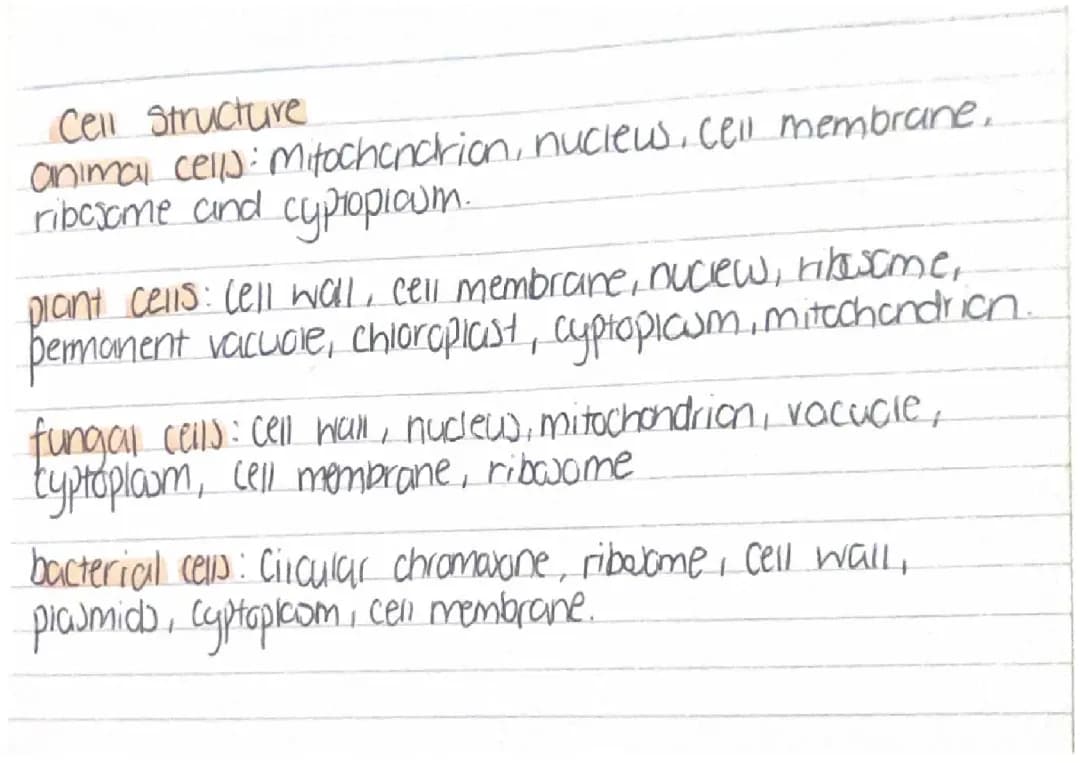 Cell Structure
animal cells: mitochondrion, nucleus, cell membrane,
ribosome and cyptoplasm.
plant cells: cell wall, cell membrane, nucleus, ribosome,
permanent vacuole, chloroplast, cyptoplasm, mitochondrion.
fungal cells: cell wall, nucleus, mitochondrion, vacuole,
cyptoplasm, cell membrane, ribosome
bacterial cells: Circular chromosone, ribosome, cell wall,
plasmids, cyptoplasm, cell membrane.